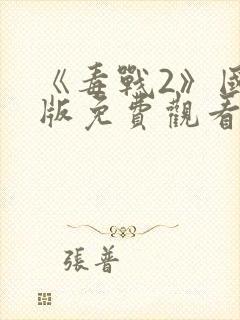 《毒戰2》國
版免費觀看
張普